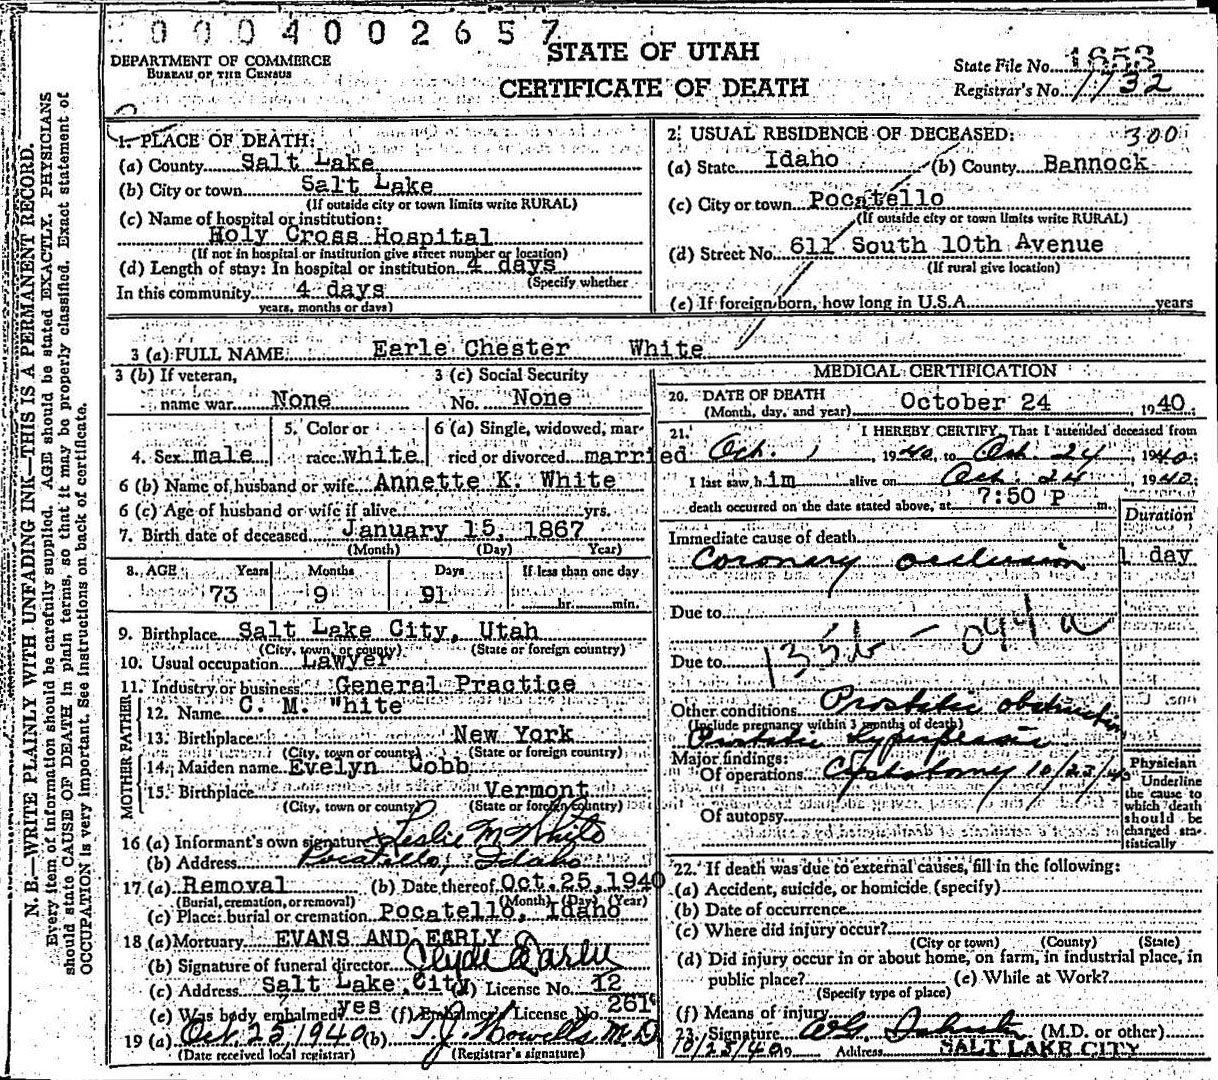 0004002657
STATE OF UTAH
CERTIFICATE OF DEATH
DEPARTMENT OF COMMERCE
BUREAU OF THE CENSUS
State File No. 1653
Registrar's No. 1732
N. B.—WRITE PLAINLY WITH UNFADING INK—THIS IS A PERMANENT RECORD.
Every item of information should be carefully supplied. AGE should be stated EXACTLY. PHYSICIANS
should state CAUSE OF DEATH in plain terms, so that it may be properly classified. Exact statement of
OCCUPATION is very important. See instructions on back of certificate.
1. PLACE OF DEATH:
(a) County Salt Lake
(b) City or town Salt Lake
(If outside city or town limits write RURAL)
(c) Name of hospital or institution:
Holy Cross Hospital
(If not in hospital or institution give street number or location)
(d) Length of stay: In hospital or institution 4 days
(Specify whether
In this community 4 days
years, months or days)
2. USUAL RESIDENCE OF DECEASED: 300
(a) State Idaho (b) County Bannock
(c) City or town Pocatello
(If outside city or town limits write RURAL)
(d) Street No. 611 South 10th Avenue
(If rural give location)
(e) If foreign born, how long in U.S.A. years
3 (a) FULL NAME Earle Chester White
3 (b) If veteran, 3 (c) Social Security
name war None No. None
4. Sex male 5. Color or race white 6 (a) Single, widowed, married or divorced married
6 (b) Name of husband or wife Annette K. White
6 (c) Age of husband or wife if alive yrs.
7. Birth date of deceased January 15, 1867
(Month) (Day) Year)
8. AGE: Years Months Days If less than one day
73 9 91 hr. min.
9. Birthplace Salt Lake City, Utah
(City, town, or county) (State or foreign country)
10. Usual occupation Lawyer
11. Industry or business General Practice
FATHER
12. Name C. M. "hite
13. Birthplace New York
(City, town or county) (State or foreign country)
MOTHER
14. Maiden name Evelyn Cobb
15. Birthplace Vermont
(City, town or county) (State or foreign country)
16 (a) Informant's own signature Leslie M White
(b) Address Pocatello, Idaho
17 (a) Removal (b) Date thereof Oct. 25, 1940
(Burial, cremation, or removal) (Month) (Day) (Year)
(c) Place: burial or cremation Pocatello, Idaho
18 (a) Mortuary EVANS AND EARLY
(b) Signature of funeral director Clyde
(c) Address Salt Lake City (d) License No. 12
(e) Was body embalmed? yes (f) Embalmer's License No. 261
19 (a) Oct. 25, 1940 (b) T. J. Howells M.D
(Date received local registrar) (Registrar's signature)
MEDICAL CERTIFICATION
20. DATE OF DEATH
(Month, day, and year) October 24 1940.
21. I HEREBY CERTIFY, That I attended deceased from
Oct. 1 1940, to Oct. 24, 1940;
I last saw him alive on Oct. 24 1940;
death occurred on the date stated above, at 7:50 P m.
Duration
Immediate cause of death
Coronary occlusion 1 day
Due to
135b - 094a
Due to
Other conditions Prostatic obstruction
(Include pregnancy within 3 months of death)
Prostatic
Major findings:
Of operations Cystotomy 10/23/40
Of autopsy
Physician
Underline
the cause to
which death
should be
charged sta-
tistically
22. If death was due to external causes, fill in the following:
(a) Accident, suicide, or homicide (specify)
(b) Date of occurrence
(c) Where did injury occur?
(City or town) (County) (State)
(d) Did injury occur in or about home, on farm, in industrial place, in
public place? (e) While at Work?
(Specify type of place)
(f) Means of injury
23. Signature (M.D. or other)
10/25/40 Address SALT LAKE CITY